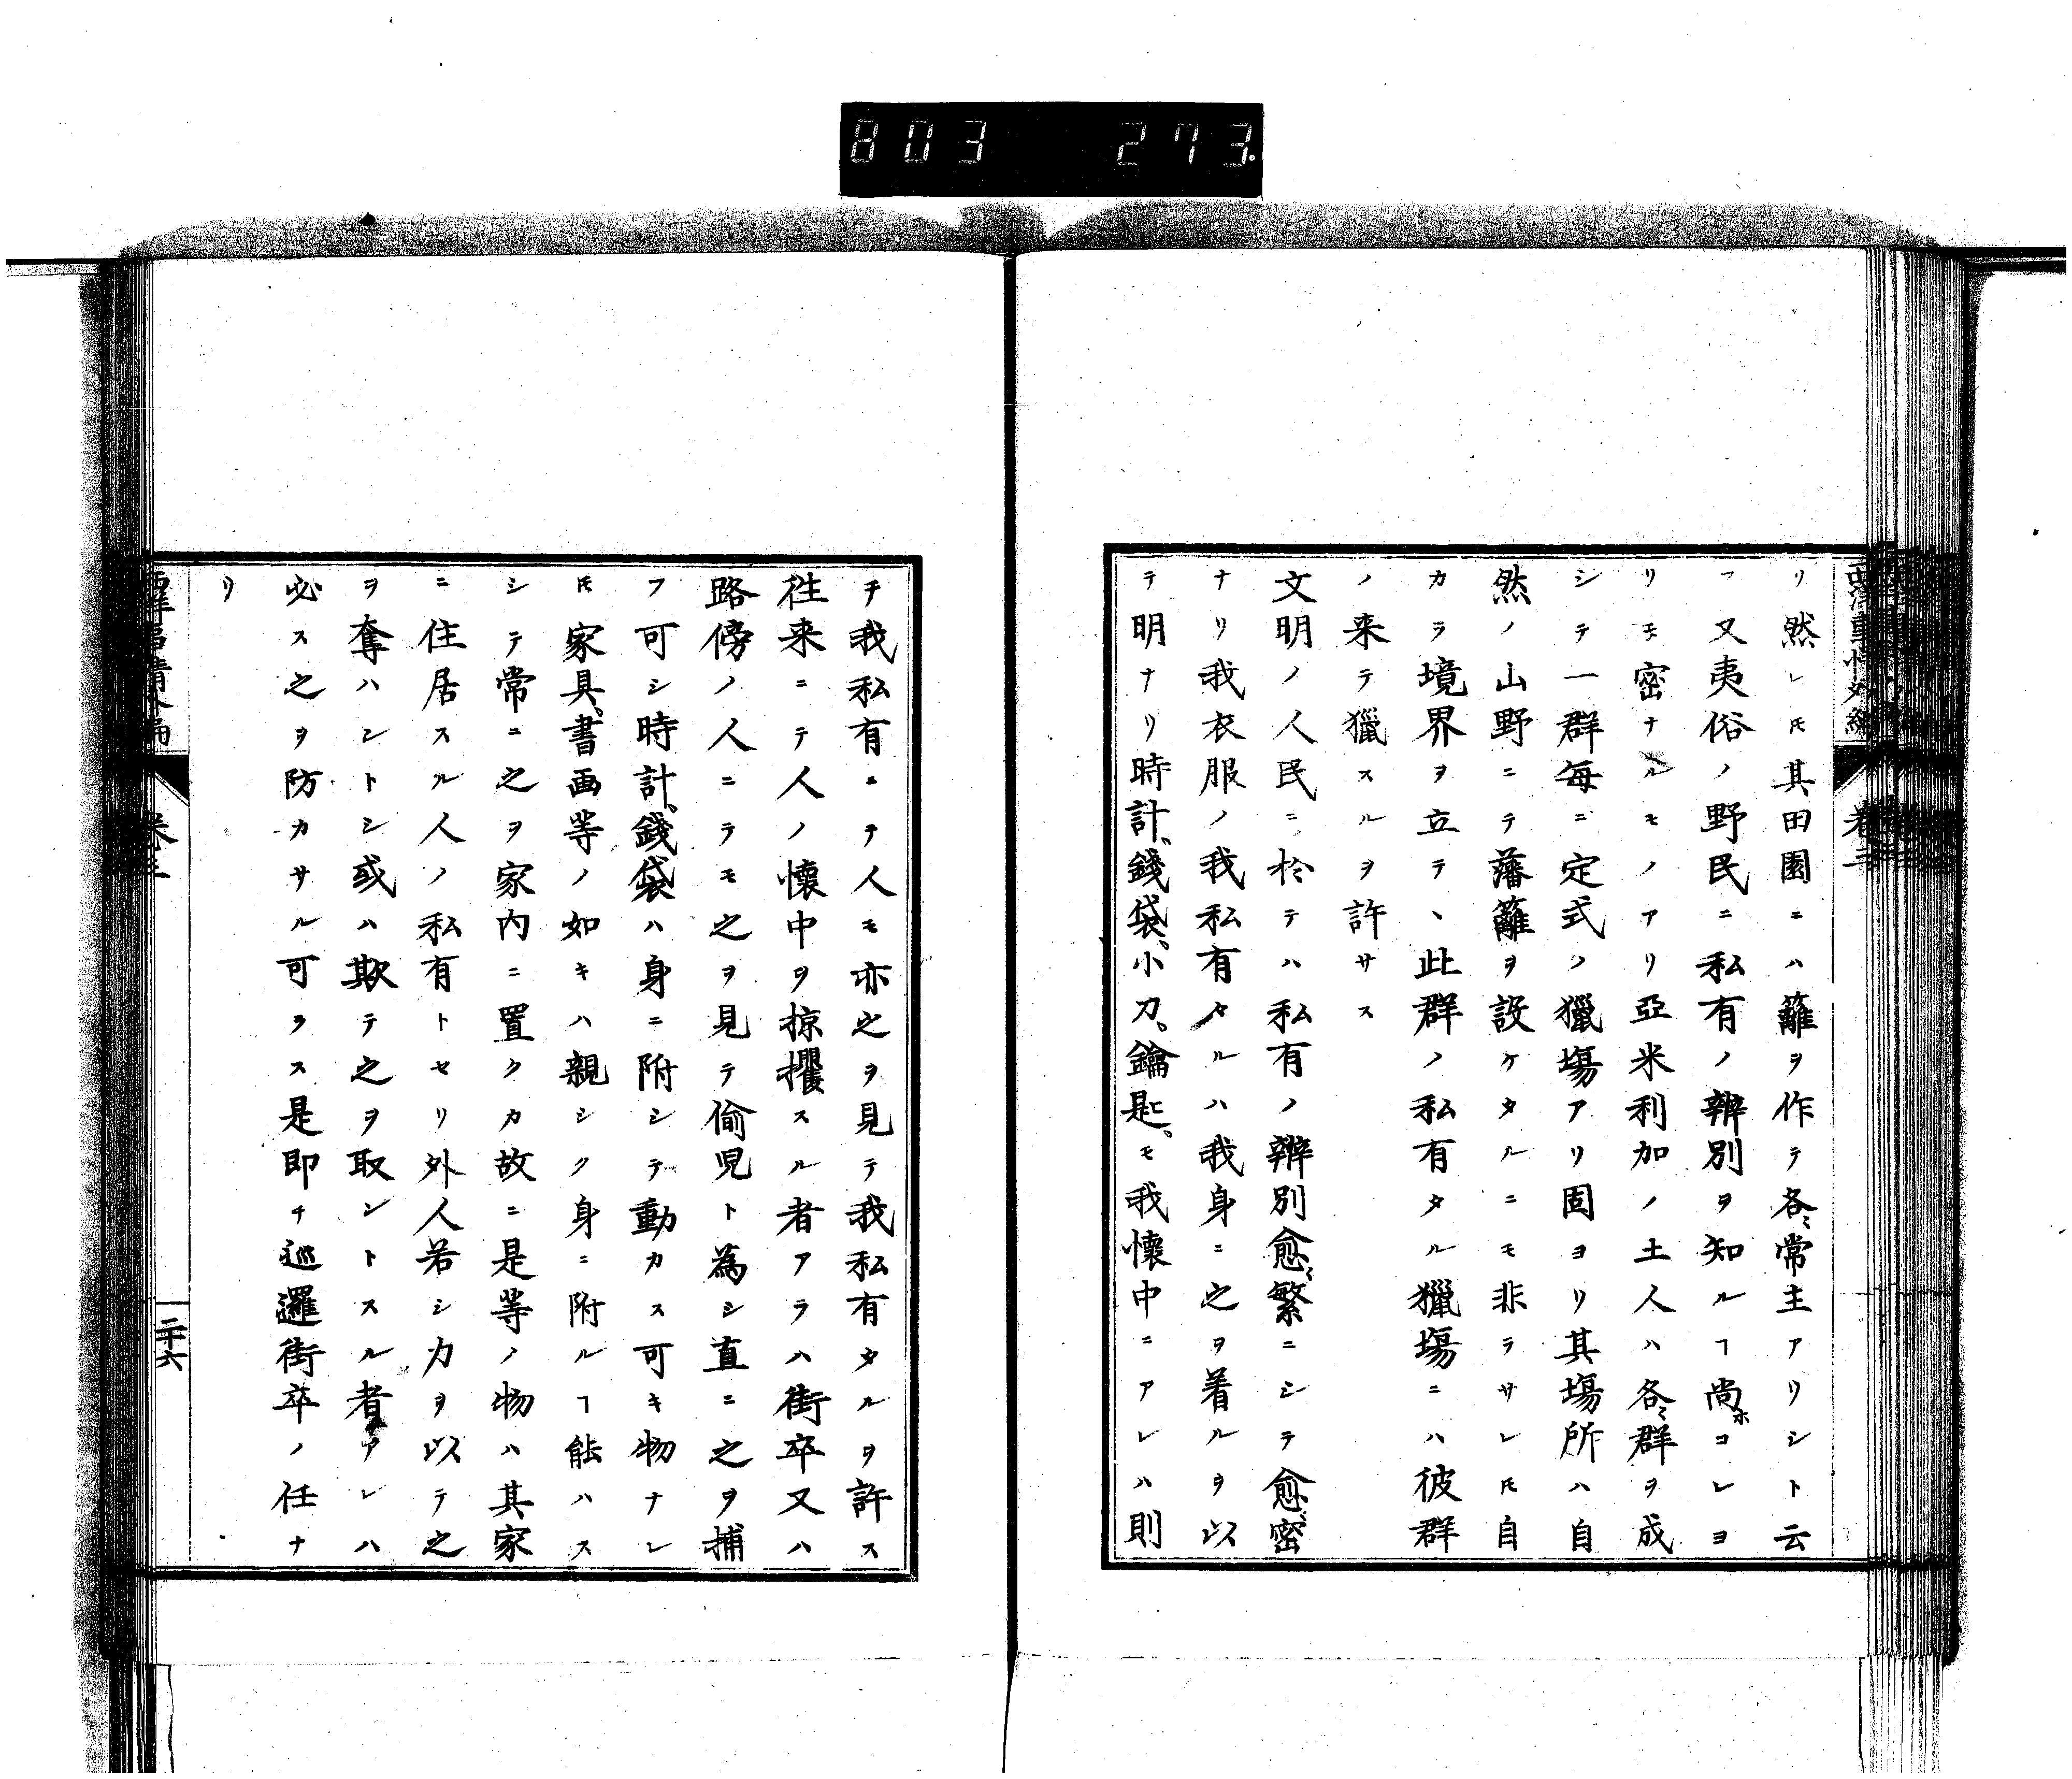 803 273.
西洋事情外編
卷三
リ然レ𪜈其田園ニハ籬ヲ作テ各〻常主アリシト云
フ又夷俗ノ野民ニ私有ノ辨別ヲ知ルヿ尚ホコレヨ
リモ密ナルモノアリ亞米利加ノ土人ハ各〻群ヲ成
シテ一群每ニ定式ノ獵場アリ固ヨリ其場所ハ自
然ノ山野ニテ藩籬ヲ設ケタルニモ非ラサレ𪜈自
カラ境界ヲ立テヽ此群ノ私有タル獵場ニハ彼群
ノ来テ獵スルヲ許サス
文明ノ人民ニ於テハ私有ノ辨別愈〻繁ニシテ愈〻密
ナリ我衣服ノ我私有タルハ我身ニ之ヲ着ルヲ以
テ明ナリ時計、錢袋、小刀、鑰匙、モ我懷中ニアレハ則
チ我私有ニテ人モ亦之ヲ見テ我私有タルヲ許ス
徃来ニテ人ノ懷中ヲ掠攫スル者アラハ街卒又ハ
路傍ノ人ニテモ之ヲ見テ偷児ト為シ直ニ之ヲ捕
フ可シ時計、錢袋ハ身ニ附シテ動カス可キ物ナレ
𪜈家具。書画等ノ如キハ親シク身ニ附ルヿ能ハス
シテ常ニ之ヲ家内ニ置クカ故ニ是等ノ物ハ其家
ニ住居スル人ノ私有トセリ外人若シ力ヲ以テ之
ヲ奪ハントシ或ハ欺テ之ヲ取ントスル者アレハ
必ス之ヲ防カサル可ラス是即チ巡邏街卒ノ任ナ
リ
西洋事情外編
卷三
二十六